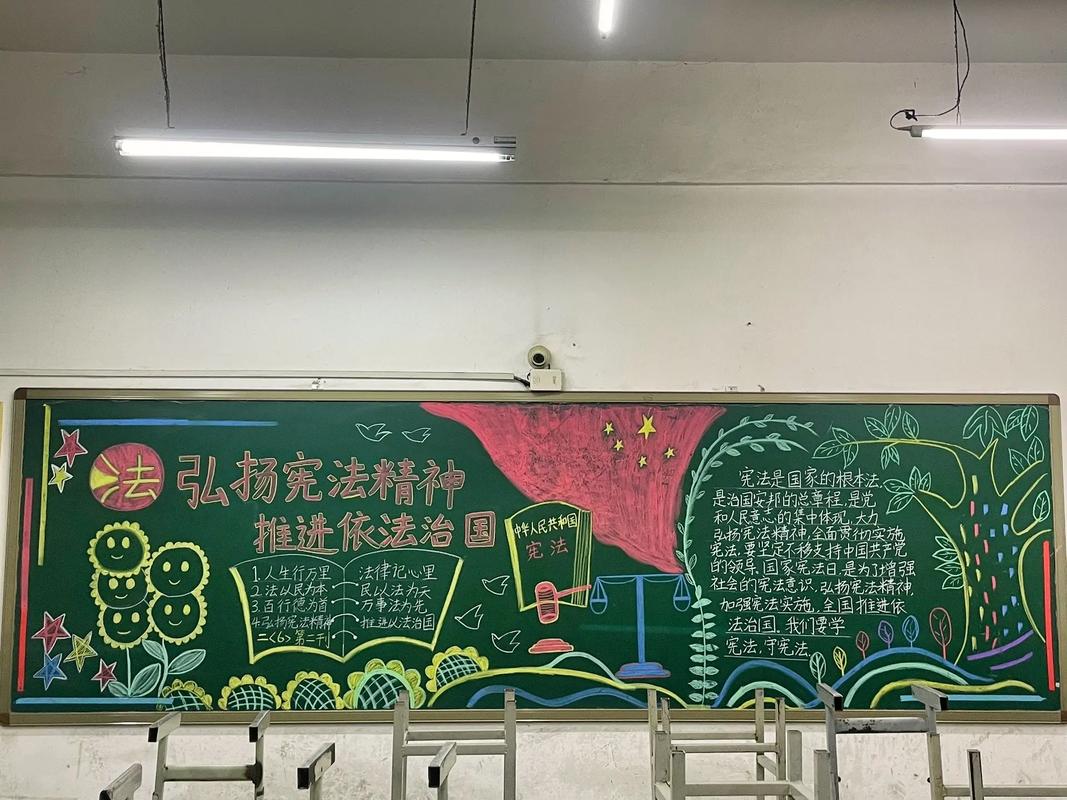 法
弘扬宪法精神
推进依法治国
1.人生行万里 法律记心里
2.法以民为本 民以法为天
3.百行德为首 万事法为先
4.弘扬宪法精神 推进以法治国
二<6>第二刊
中华人民共和国
宪法
宪法是国家的根本法,
是治国安邦的总章程,是党
和人民意志的集中体现,大力
弘扬宪法精神,全面贯彻实施
宪法,要坚定不移支持中国共产党
的领导.国家宪法日,是为了增强
社会的宪法意识,弘扬宪法精神,
加强宪法实施,全国推进依
法治国,我们要学
宪法,守宪法.